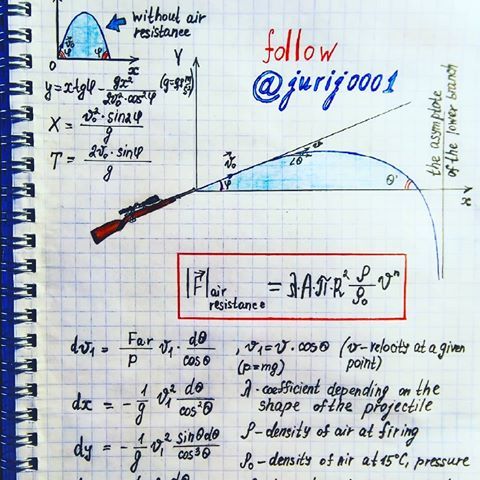 without air
resistance
0
x
v⃗₀
φ
φ
y = x·tgφ − gx²/2v₀²·cos²φ
X = v₀²·sin2φ/g
T = 2v₀·sinφ/g
Y
follow
@jurij0001
v⃗₀
φ
θ'
x
the asymptote
of the lower branch
|F⃗| air resistance = λ·A·π·R² ρ/ρ₀ vⁿ
dv₁ = Far/p v₁· dθ/cosθ , v₁ = v·cosθ (v–velocity at a given
(p=mg) point)
dx = − 1/g v₁² dθ/cos²θ λ-coefficient depending on the
shape of the projectile
dy = − 1/g v₁² sinθdθ/cos³θ ρ-density of air at firing
ρ₀-density of air at 15°C, pressure